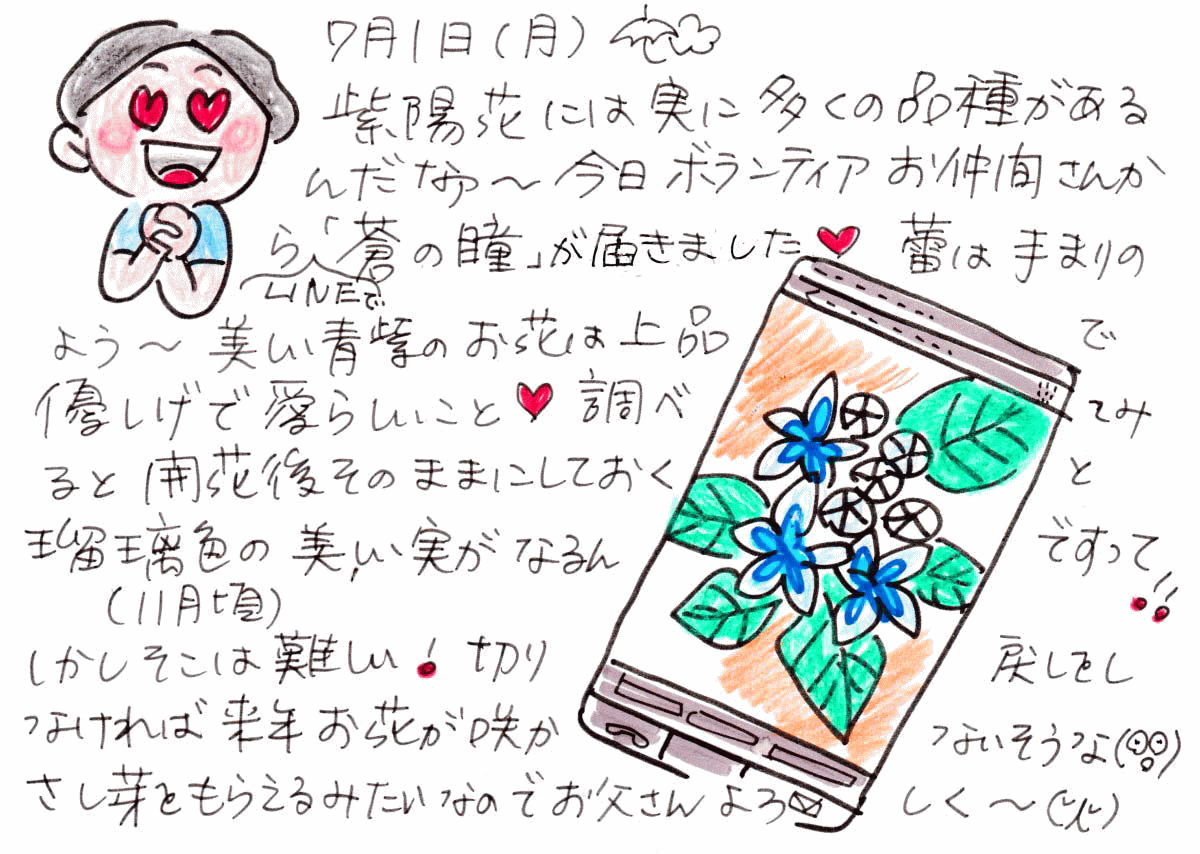 7月1日(月)
紫陽花には実に多くの品種がある
んだなァ〜今日ボランティアお仲間さんか
ら「蒼の瞳」が届きました♥ 蕾は手まりの
LINEで
よう〜美しい青紫のお花は上品で
優しげで愛らしいこと♥調べてみ
ると開花後そのままにしておくと
瑠璃色の美しい実がなるんですって!!
(11月頃)
しかしそこは難しい! 切り戻しをし
なければ来年お花が咲かないそうな
さし芽をもらえるみたいなのでお父さんよろしく〜